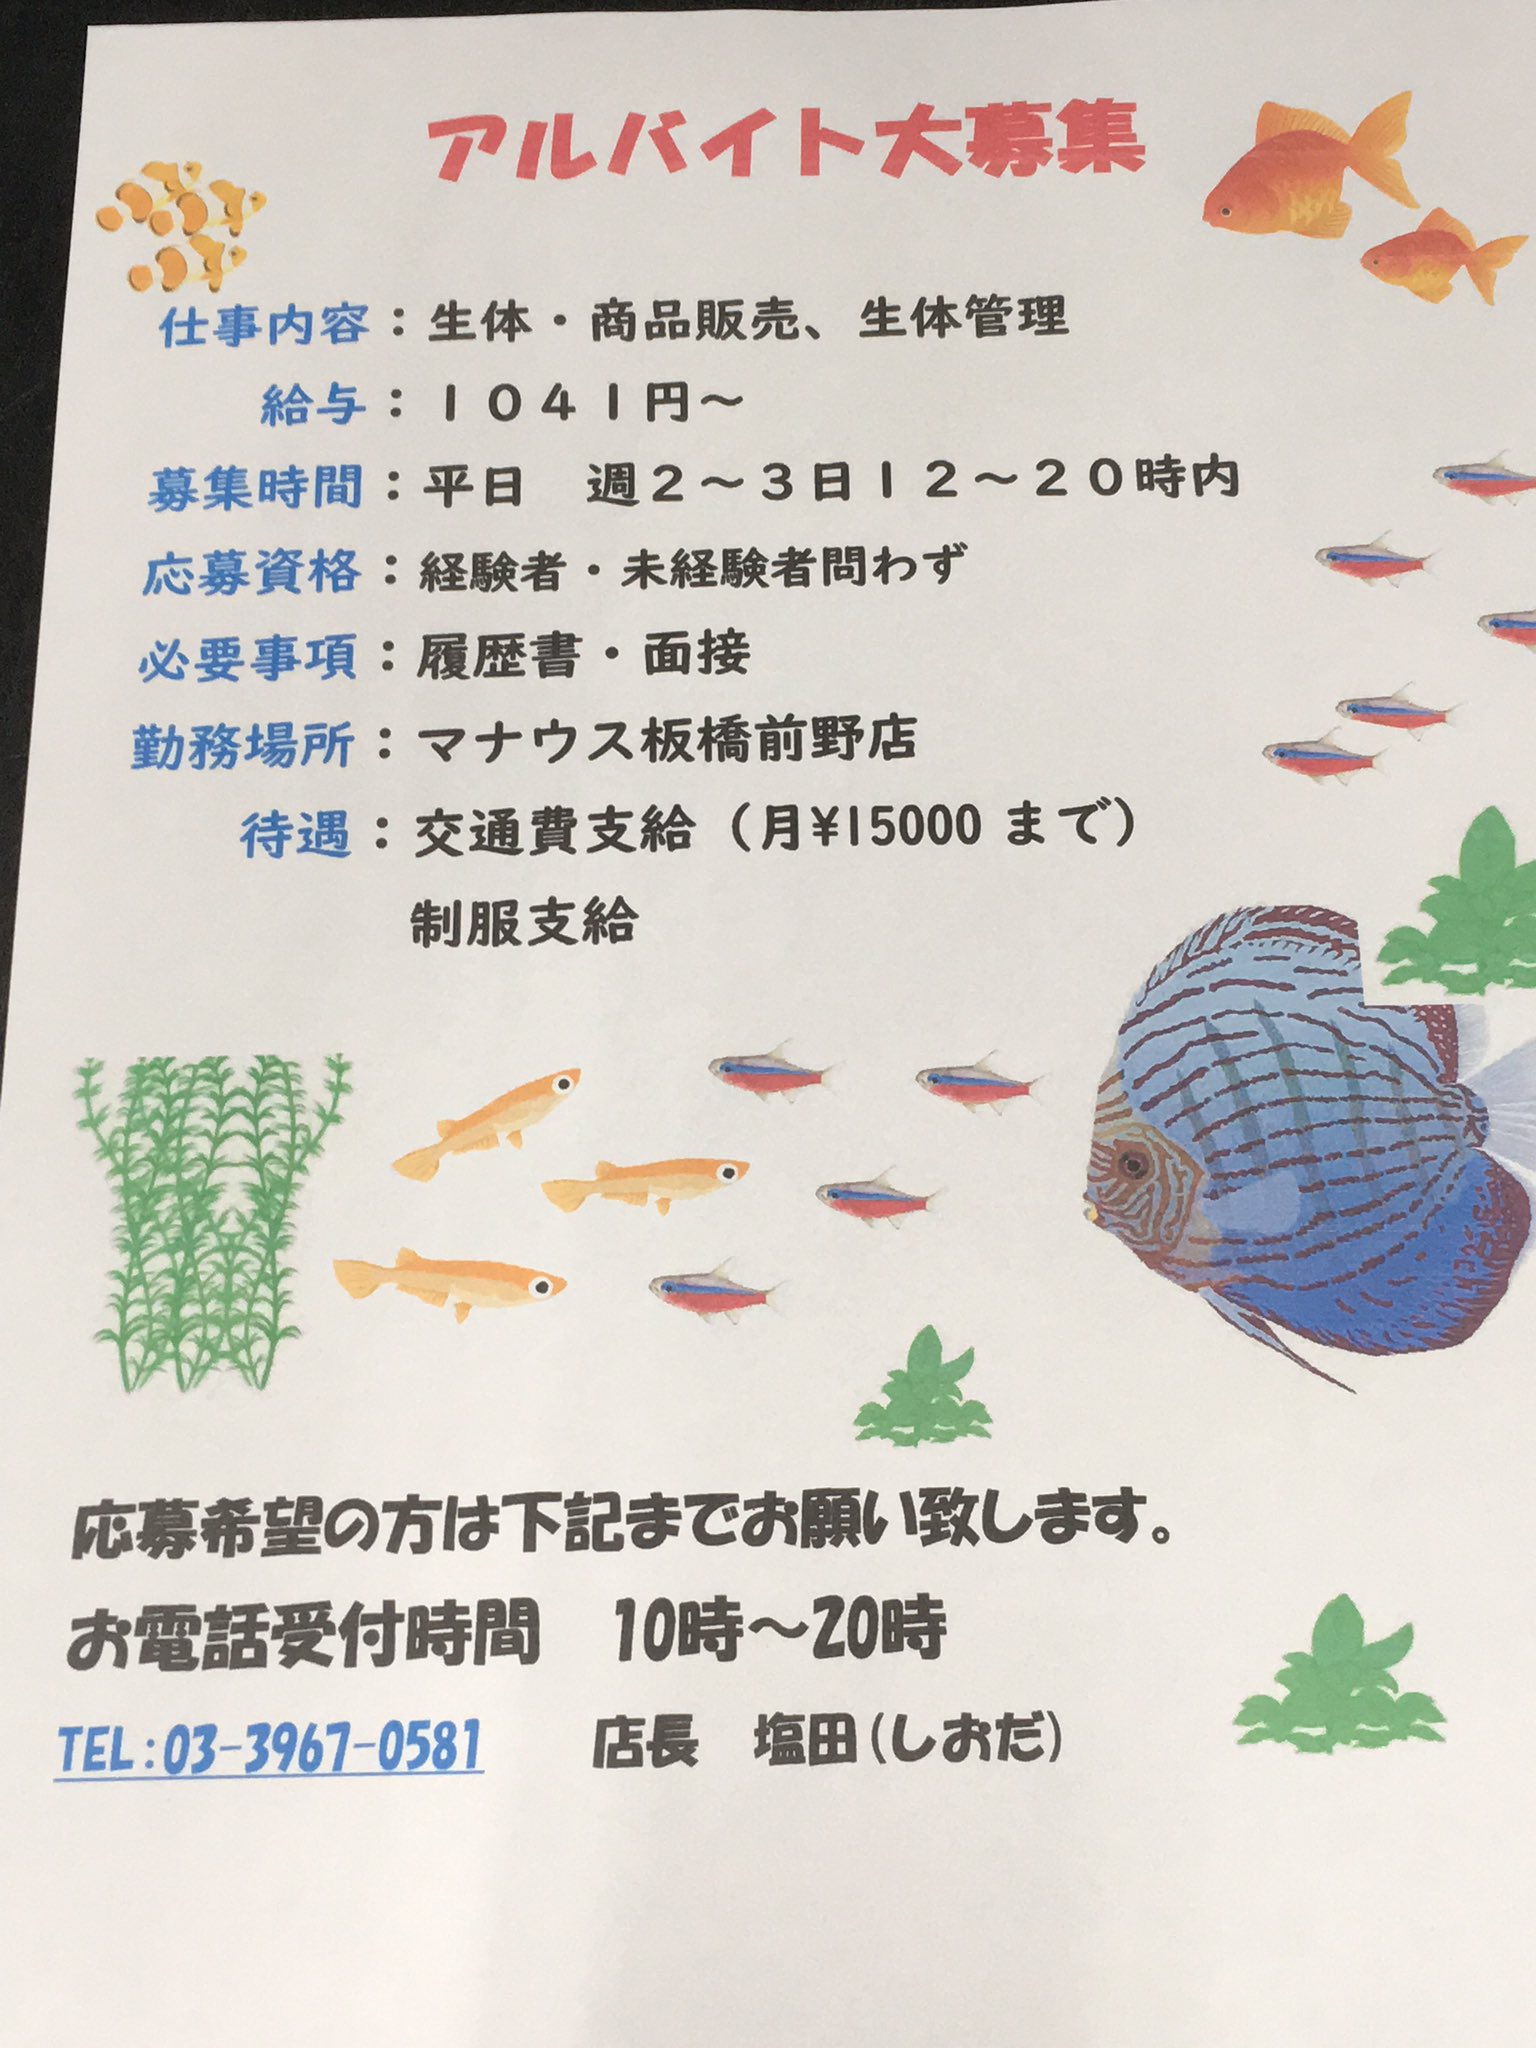 アルバイト大募集
仕事内容：生体・商品販売、生体管理
給与：１０４１円～
募集時間：平日　週２～３日１２～２０時内
応募資格：経験者・未経験者問わず
必要事項：履歴書・面接
勤務場所：マナウス板橋前野店
待遇：交通費支給（月¥15000 まで）
制服支給
応募希望の方は下記までお願い致します。
お電話受付時間　10時～20時
TEL:03-3967-0581　店長　塩田(しおだ)